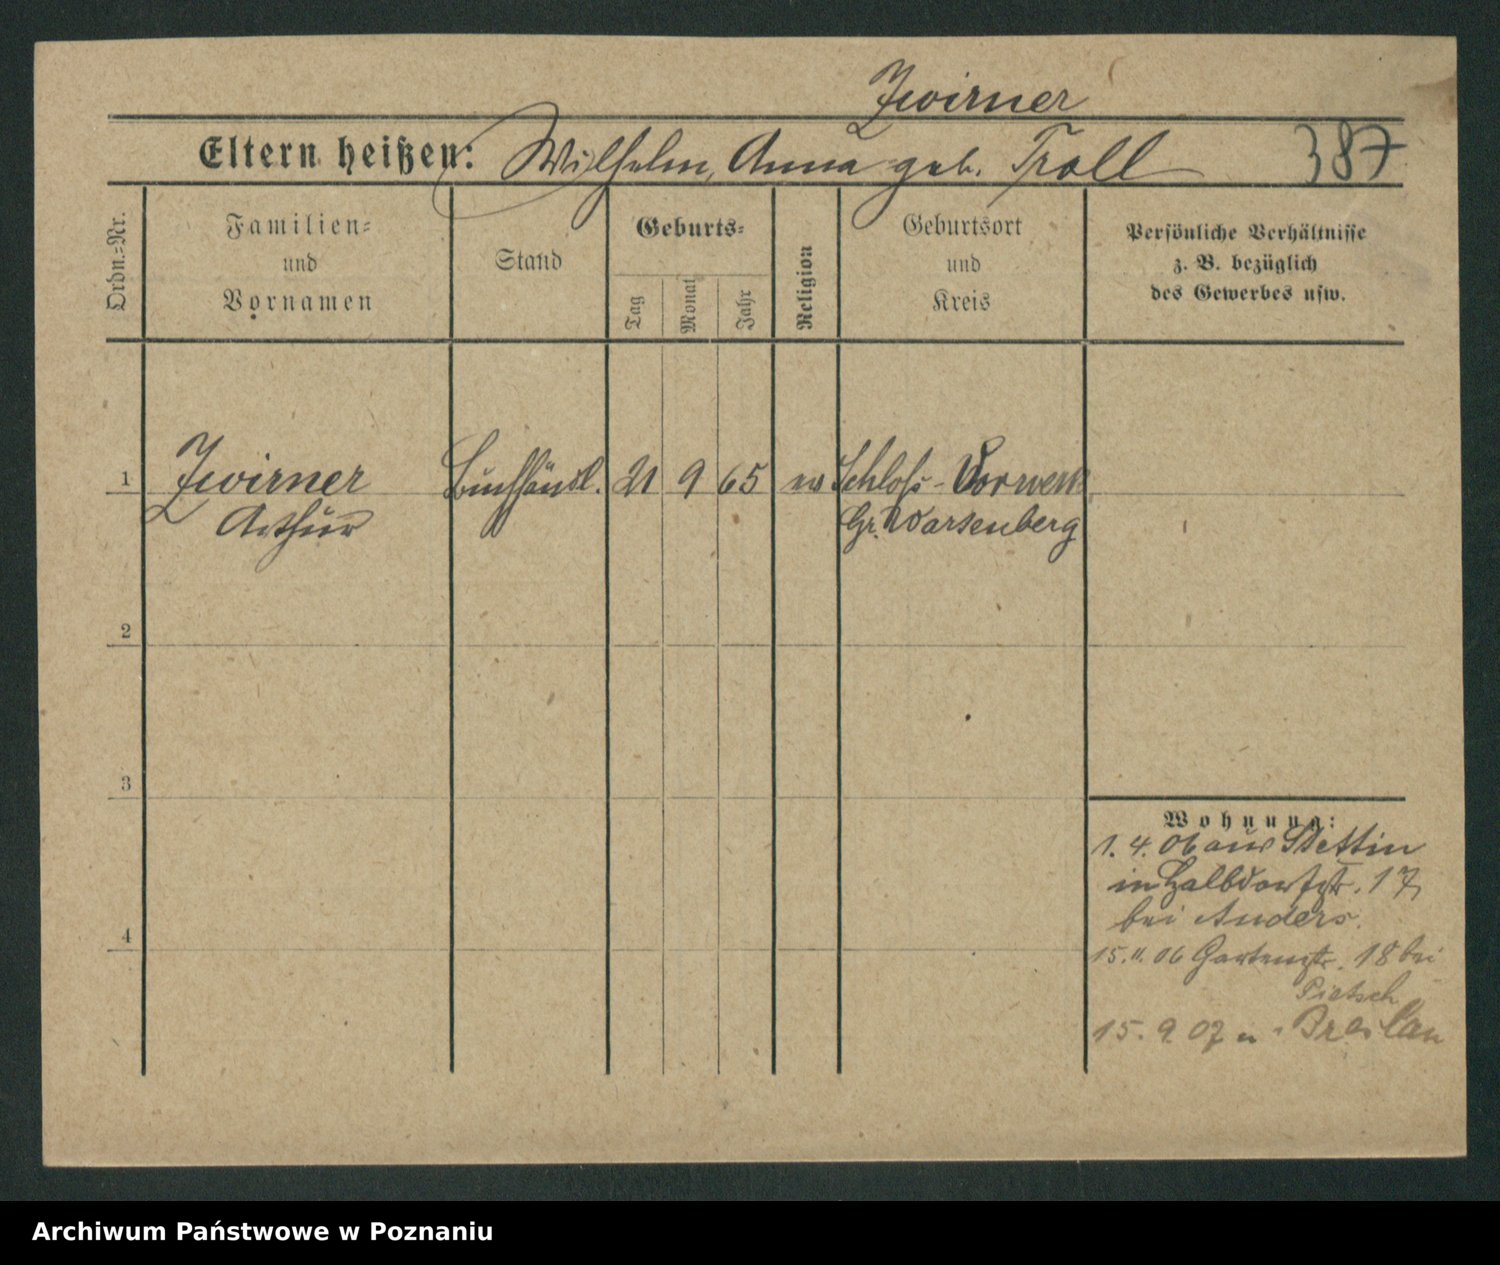 Zwirner
Eltern heißen: Wilhelm, Anna geb. Troll 387
Ordn.-Nr.
Familien-
und
Vornamen
Stand
Geburts-
Tag
Monat
Jahr
Religion
Geburtsort
und
Kreis
Persönliche Verhältnisse
z. B. bezüglich
des Gewerbes usw.
1 Zwirner Buchhändl. 21 9 65 ev Schloss-Vorwerk
Arthur Gr. Wartenberg
2
3
4
Wohnung:
1. 4. 06 aus Stettin
in Halbdorfstr. 17
bei Anders.
15. 11. 06 Gartenstr. 18 bei
Pietsch
15. 9. 07 n. Breslau
Archiwum Państwowe w Poznaniu